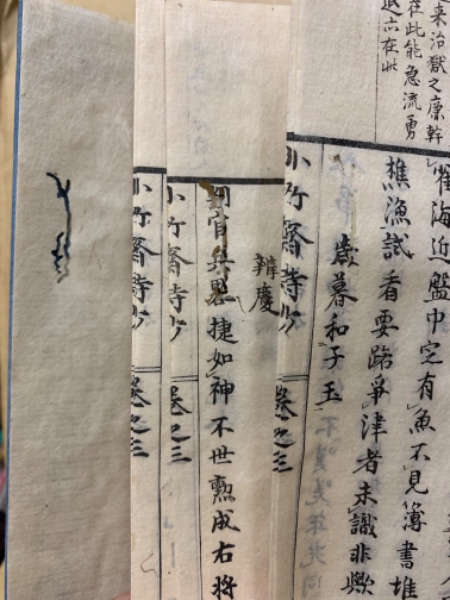 來治獄之廉幹
在此能急流勇
退亦在此
海近盤中定有魚不見簿書堆
樵漁試看要路爭津者未識非歟
歲暮和子玉
小竹齋詩鈔 卷之三
辨慶
官兵思捷如神不世勲成右將
小竹齋詩鈔 卷之三
小竹齋詩鈔 卷之三